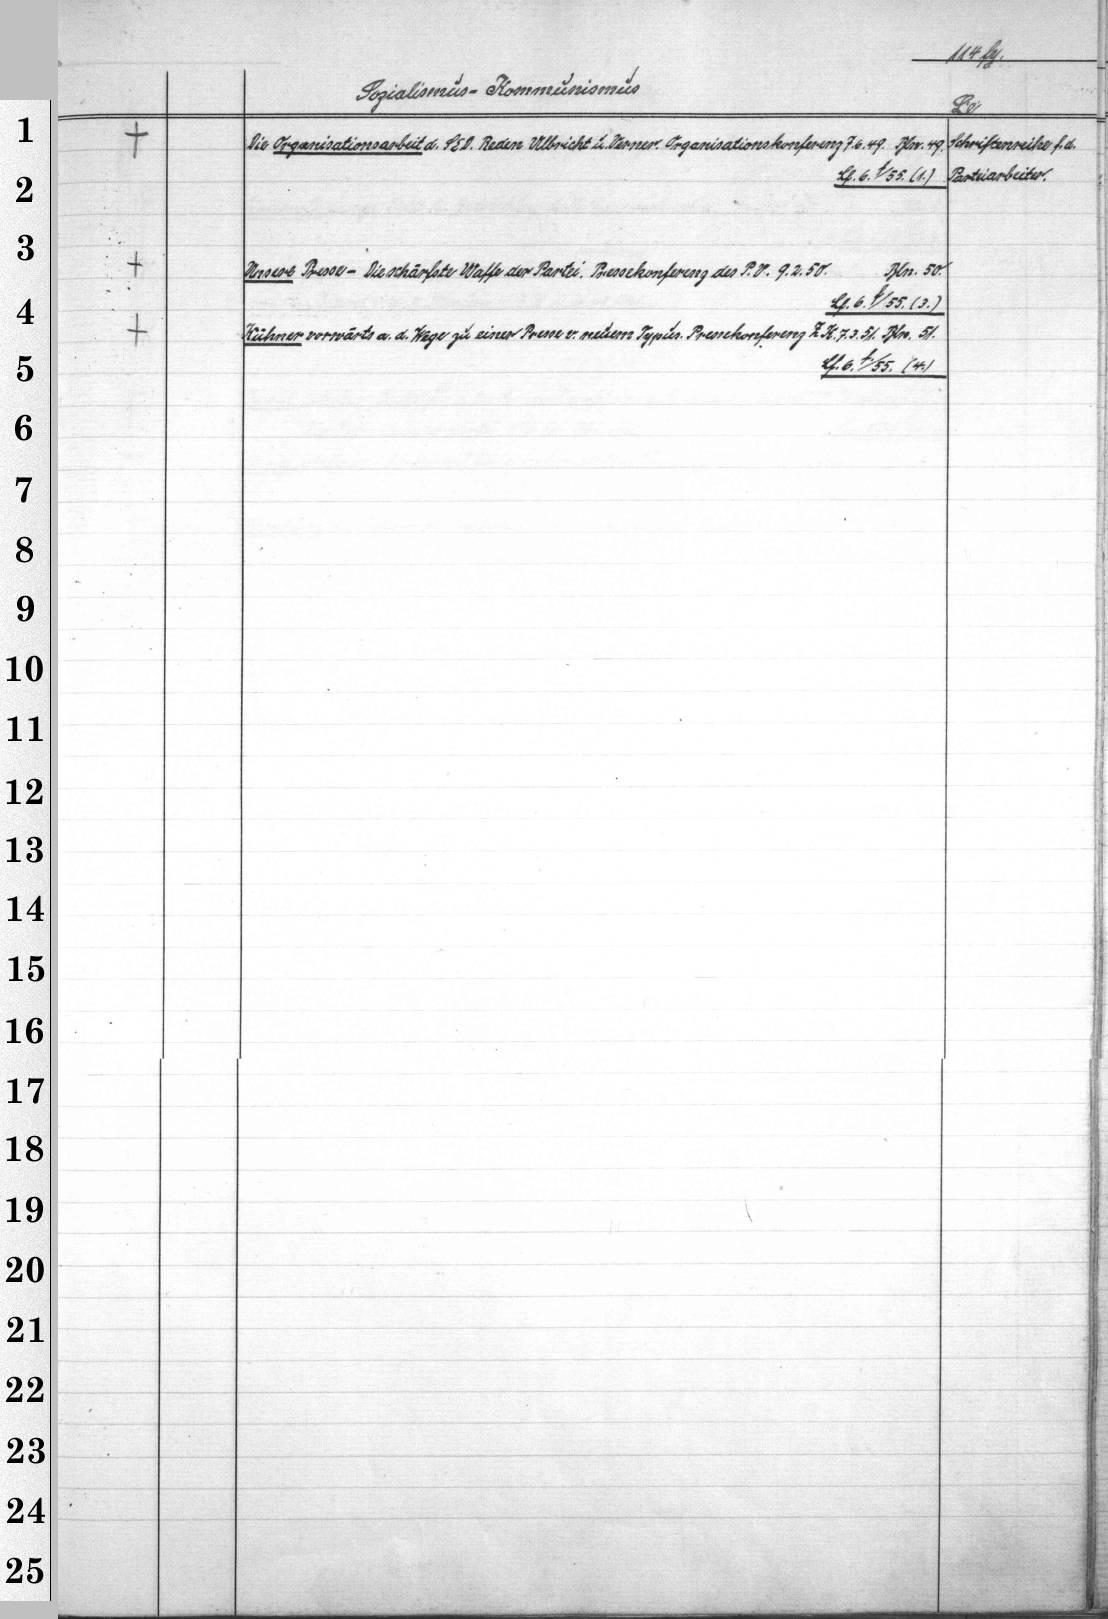 114
Sozialismus - Kommunismus
1
+ Die Organisationsarbeit d. SED. Reden Ulbricht u. Verner. Organisationskonferenz 7.6.49. Bln. 49. Schriftenreihe f. d.
2
Lf. 6. t/55. (1.) Parteiarbeiter.
3
+ Unsere Presse - Die schärfste Waffe der Partei. Pressekonferenz des P.V. 9.2.50. Bln. 50.
4
Lf. 6. t/55. (3.)
+ Kühner vorwärts a. d. Wege zu einer Presse v. neuem Typus. Pressekonferenz Z.K. 7.3.51. Bln. 51.
5
Lf. 6. t/55. (4.)
6
7
8
9
10
11
12
13
14
15
16
17
18
19
20
21
22
23
24
25